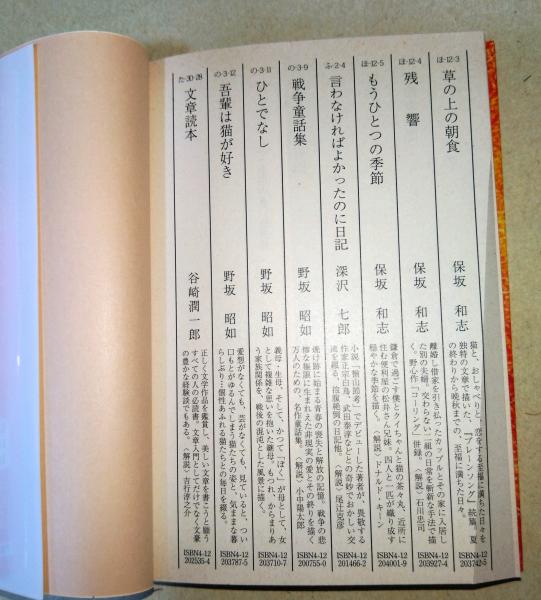 ほ-12-3
草の上の朝食
保坂 和志
猫と、おしゃべりと、恋をする至福に満ちた日々を
独特の文章で描いた、『プレーンソング』続篇。夏
の終わりから晩秋までの、至福に満ちた日々。
ISBN4-12
203742-5
ほ-12-4
残 響
保坂 和志
離婚し借家を引き払ったカップルとその家に入居し
た別の夫婦。交わらない二組の日常を斬新な手法で描
く。野心作「コーリング」併録。〈解説〉石川忠司
ISBN4-12
203927-4
ほ-12-5
もうひとつの季節
保坂 和志
鎌倉で過ごす僕とクイちゃんと猫の茶々丸、近所に
住む便利屋の松井さん兄妹。四人と一匹が織り成す
穏やかな季節を描く。〈解説〉ドナルド・キーン
ISBN4-12
204001-9
ふ-2-4
言わなければよかったのに日記
深沢 七郎
小説「楢山節考」でデビューした著者が、畏敬する
作家正宗白鳥、武田泰淳などとの奇妙でおかしい交
流を綴る、抱腹絶倒の日記他。〈解説〉尾辻克彦
ISBN4-12
201466-2
の-3-9
戦争童話集
野坂 昭如
焼け跡に始まる青春の喪失と解放の記憶。戦争の悲
惨な極限に生まれえた非現実の愛とその終りを描く
万人のための、名作童話集。〈解説〉小中陽太郎
ISBN4-12
200755-0
の-3-11
ひとでなし
野坂 昭如
義母・生母、そして、かつて「ぼく」が母として、女
として複雑な思いを抱いた継母。もつれ、からまりあ
う家族関係を、戦後の混沌とした風景に描く。
ISBN4-12
203710-7
の-3-12
吾輩は猫が好き
野坂 昭如
愛想がなくても、芸がなくても、見ていると、つい
口もとがゆるんでしまう猫たちの姿と、気ままな暮
らしぶり…個性あふれる猫たちとの毎日を綴る。
ISBN4-12
203787-5
た-30-28
文章読本
谷崎潤一郎
正しく文学作品を鑑賞し、美しい文章を書こうと願う
すべての人の必読書。文章入門としてだけでなく文豪
の豊かな経験談でもある。〈解説〉吉行淳之介
ISBN4-12
202535-4